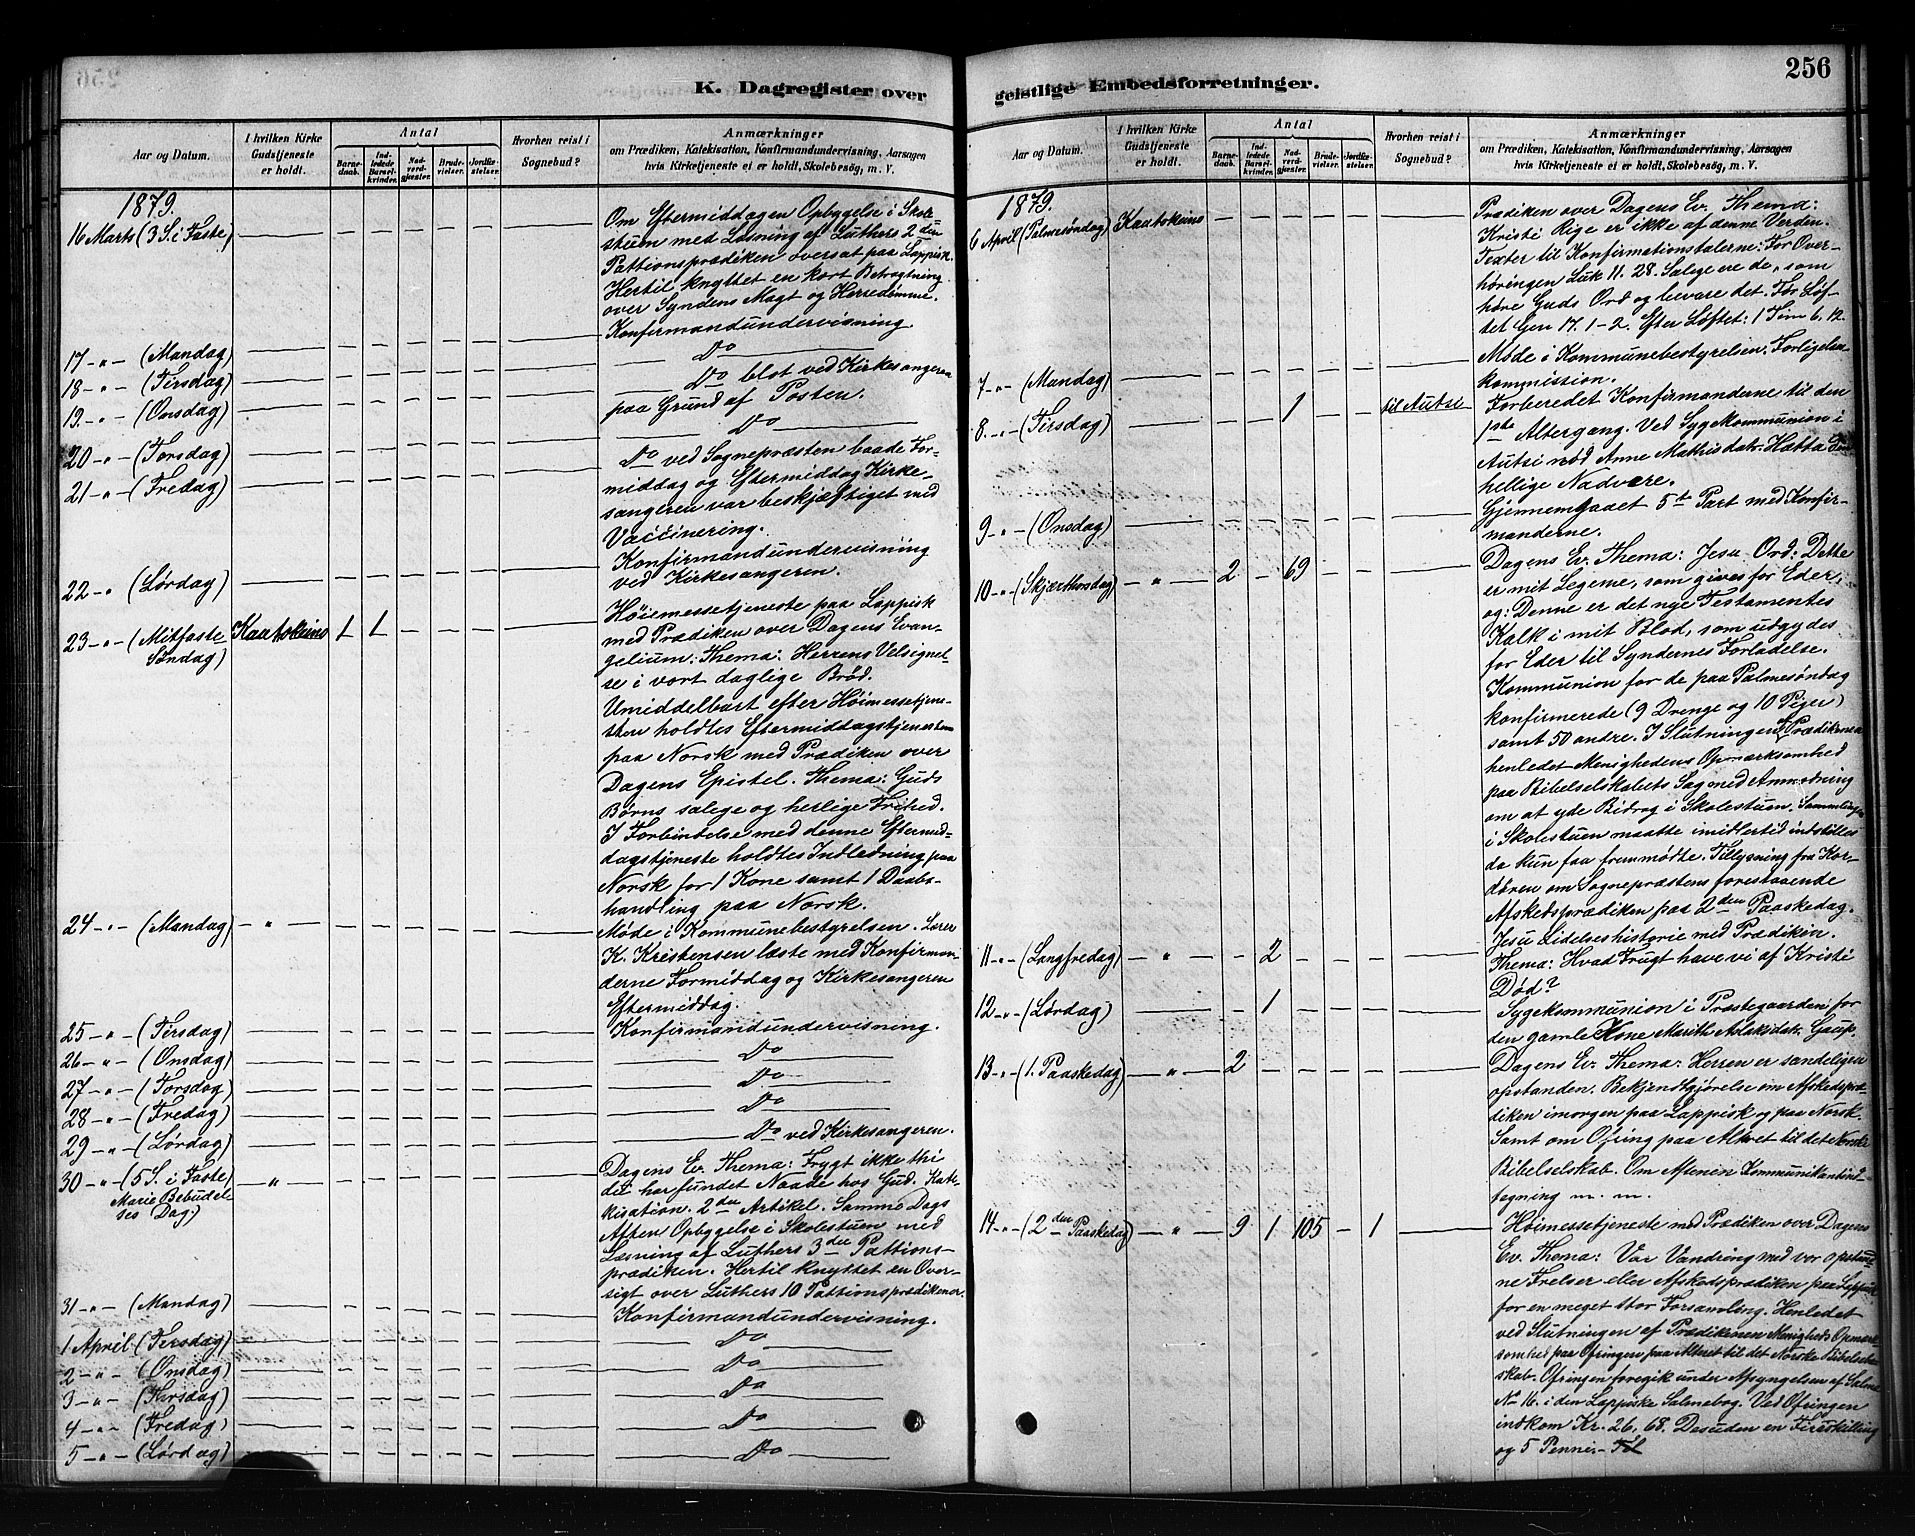 256
K. Dagregister over
geistlige Embedsforretninger.
Aar og Datum.
I hvilken Kirke Gudstjeneste er holdt.
Antal
Barnedaab.
Indledede Barselkvinder.
Nadverdgjæster.
Brudevielser.
Jordfæstelser.
Hvorhen reist i Sognebud?
Anmærkninger
om Prædiken, Katekisation, Konfirmandundervisning, Aarsagen
hvis Kirketjeneste ei er holdt, Skolebesög, m. V.
1879.
16 Marts (3 S. i Faste)
Om Eftermiddagen Opbyggelse i Skole-
stuen med Læsning af Luthers 2den
Pattionsprædiken oversat paa Lappisk.
Hertil knyttet en kort Betragtning
over Syndens Magt og Herredømme.
Konfirmandundervisning
17 -"- (Mandag) Do
18 -"- (Tirsdag) Do blot ved Kirkesangeren
19. -"- (Onsdag) paa Grund af Posten.
20 -"- (Torsdag) Do
21 -"- (Fredag) Do ved Sognepræsten baade For-
middag og Eftermiddag Kirke-
sangeren var beskjæftiget med
Vaccinering.
22 -"- (Lørdag) Konfirmandundervisning
ved Kirkesangeren.
23 -"- (Mitfaste Søndag) Kautokeino 1 1 Høiemessetjeneste paa Lappisk
med Prædiken over Dagens Evan-
gelium: Thema: Herrens Velsignel-
se i vort daglige Brød.
Umiddelbart efter Høimessetjene-
sten holdtes Eftermiddagstjenesten
paa Norsk med Prædiken over
Dagens Epistel. Thema: Guds
Børns salige og herlige Frihed.
I Forbindelse med denne Eftermid-
dagstjeneste holdtes Indledning paa
Norsk for 1 Kone samt 1 Daabs-
handling paa Norsk.
24 -"- (Mandag) " Møde i Kommunebestyrelsen. Lærer
K. Kristensen læste med Konfirman-
derne Formiddag og Kirkesangeren
Eftermiddag.
25 -"- (Tirsdag) Konfirmandundervisning.
26 -"- (Onsdag) Do
27 -"- (Torsdag) Do
28 -"- (Fredag) Do
29 -"- (Lørdag) Do ved Kirkesangeren.
30 -"- (5 S. i Faste Marie Bebudel- ses Dag.) " Dagens Ev. Thema: Frygt ikke thi
du har fundet Naade hos Gud. Kate-
kisation. 2den Artikel. Samme Dags
Aften Opbyggelse i Skolestuen med
Læsning af Luthers 3die Pattions-
prædiken. Hertil knyttet en Over-
sigt over Luthers 10 Pattionsprædikener.
31 -"- (Mandag) Konfirmandundervisning.
1 April (Tirsdag) Do
2 -"- (Onsdag) Do
3 -"- (Torsdag) Do
4 -"- (Fredag) Do
5 -"- (Lørdag) Do
Aar og Datum.
I hvilken Kirke Gudstjeneste er holdt.
Antal
Barnedaab.
Indledede Barselkvinder.
Nadverdgjæster.
Brudevielser.
Jordfæstelser.
Hvorhen reist i Sognebud?
Anmærkninger
om Prædiken, Katekisation, Konfirmandundervisning, Aarsagen
hvis Kirketjeneste ei er holdt, Skolebesög, m. V.
1879.
6 April (Palmesøndag) Kautokeino Prædiken over Dagens Ev. Thema:
Kristi Rige er ikke af denne Verden.
Texter til Konfirmationstalerne: For Over-
høringen Luk 11. 28. Salige ere de, som
høre Guds Ord og bevare det. Før Løf-
tet Gen 17. 1-2. Efter Løftet: 1 Tim 6. 12.
7 -"- (Mandag) Møde i Kommunebestyrelsen. Forligelses
kommission.
8. -"- (Tirsdag) 1 til Autse Forberedet Konfirmanderne til den
1ste Altergang. Ved Sygekommunion i
Autsi nød Anne Mathisdatr. Hætta den
hellige Nadvere.
9 -"- (Onsdag) Gjennemgaaet 5t Part med Konfir-
manderne.
10 -"- (Skjærthorsdag) " 2 69 Dagens Ev. Thema: Jesu Ord: Dette
er mit Legeme, som gives for Eder,
og: Denne er det nye Testamentes
Kalk i mit Blod, som udgydes
for Eder til Syndernes Forladelse.
Kommunion for de paa Palmesøndag
konfirmerede (9 Drenge og 10 Piger)
samt 50 andre. I Slutningen af Prædikenen
henledet Menighedens Opmærksomhed
paa Bibelselskabets Sag med Anmodning
om at yde Bidrag i Skolestuen. Sammlingen
i Skolestuen maatte imidlertid indstilles
da kun faa fremmødte. Tillysning fra Kor-
døren om Sognepræstens forestaaende
Afskedsprædiken paa 2den Paaskedag.
11 -"- (Langfredag) " 2 Jesu Lidelseshistorie med Prædiken.
Thema: Hvad Frugt have vi af Kristi
Død?
12 -"- (Lørdag) 1 Sygekommunion i Præstegaarden for
den gamle Kone Marith Aslaksdatr. Gaup.
13 -"- (1. Paaskedag) " 2 Dagens Ev. Thema: Herren er sandeligen
opstanden. Bekjendtgjørelse om Afskedspræ-
diken imorgen paa Lappisk og paa Norsk.
Samt om Ofring paa Altret til det Norske
Bibelselskab. Om Aftenen Kommunikantind-
tegning m. m.
14 -"- (2den Paaskedag) " 9 1 105 - 1 Høimessetjeneste med Prædiken over Dagens
Ev. Thema: Vor Vandring med vor opstand-
ne Frelser eller Afskedsprædiken paa Lappisk
for en meget stor Forsamling. Henledet
ved Slutningen af Prædikenen Menigheds Opmærk
somhed paa Ofringen paa Altret til det Norske Bibelsel-
skab. Ofringen foregik under Afsyngelsen af Salme
No 16. i den Lappiske Salmebog. Ved Ofringen
indkom Kr. 26, 68. Desuden en Fireskilling
og 5 Penni.